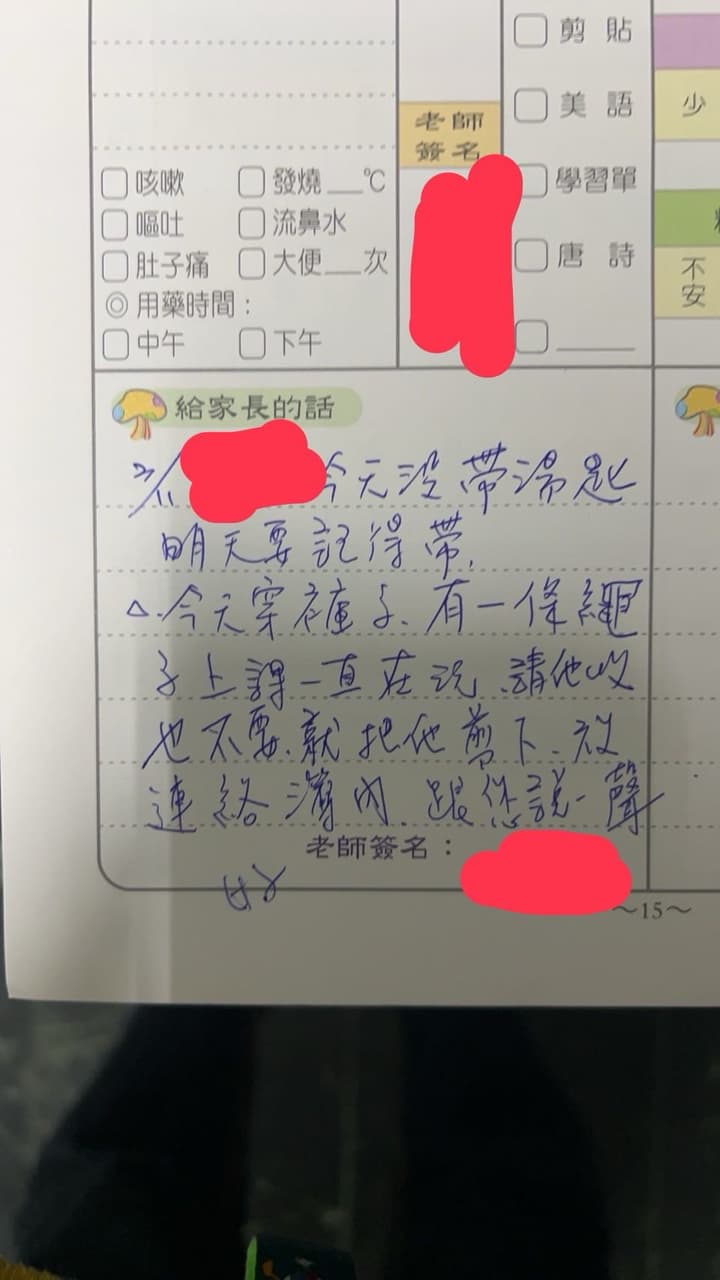 剪 貼
美 語
少
老師
簽名
學習單
唐 詩
不
安
咳嗽 發燒__℃
嘔吐 流鼻水
肚子痛 大便__次
◎用藥時間：
中午 下午
給家長的話
今天沒帶湯匙
明天要記得帶.
△.今天穿褲子.有一條繩
子上課一直在玩.請他收
也不要.就把他剪下.放
連絡簿內.跟您說一聲
老師簽名：
～15～